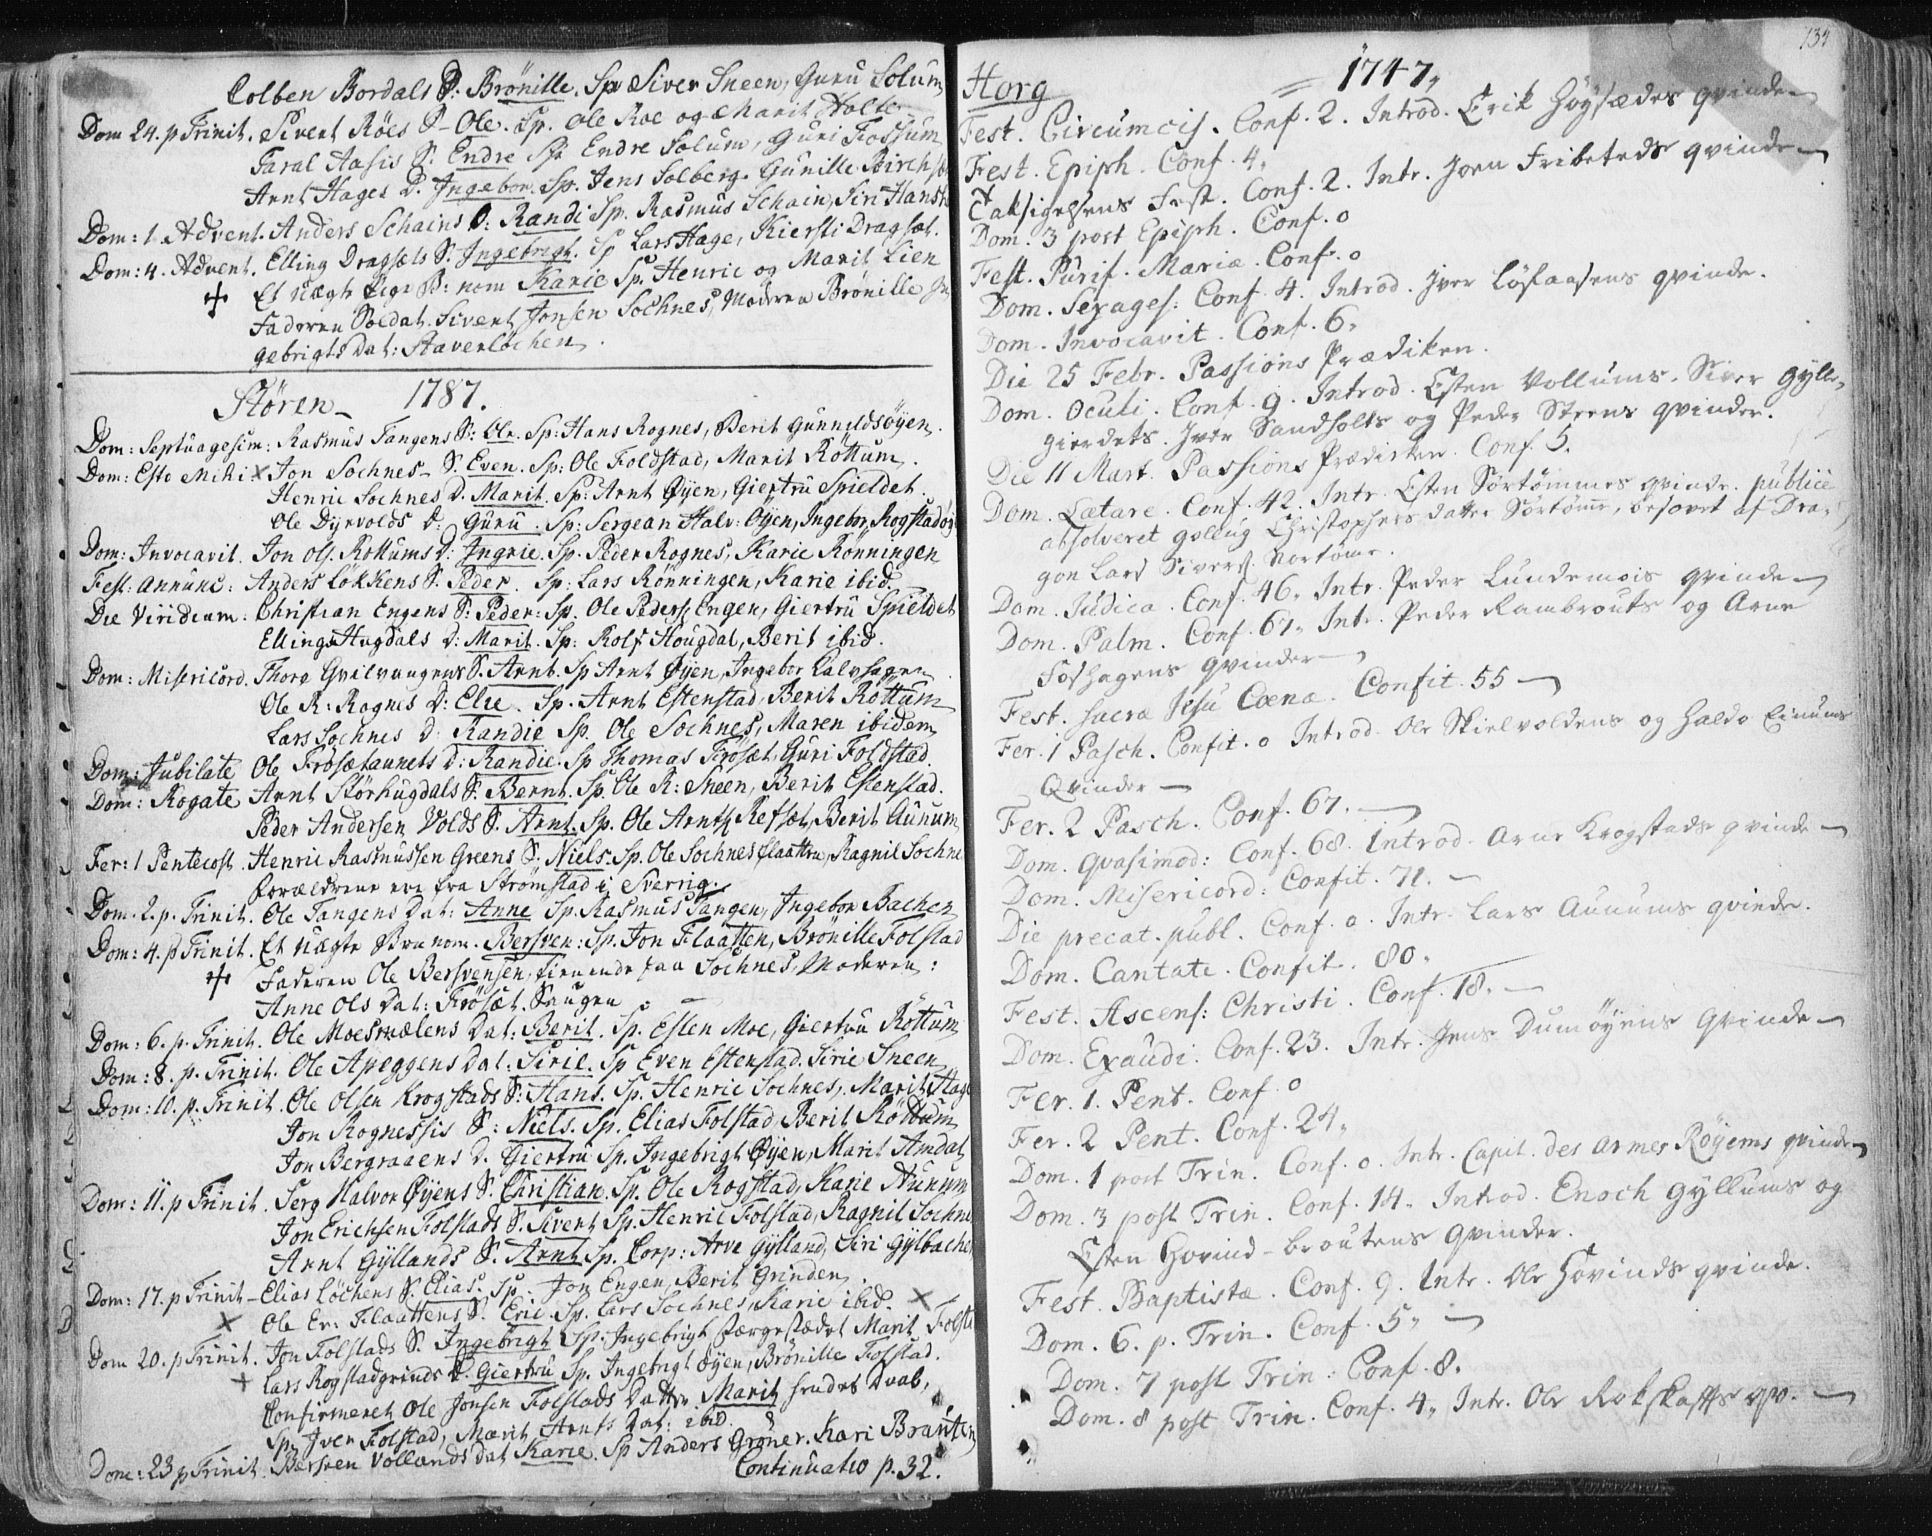 Colben Bordals D: Brönille. Sp. Siver Sneen, Guru Solum
Dom 24. p Trinit. Sivert Röes S. Ole. Sp. Ole Roe og Marit Holte
Taral Aasis S. Endre Sp Endre Solum, Guri Fossum
Arnt Hages D. Ingebor. Sp. Jens Solberg. Gunille
Dom: 1. Advent. Anders Schains D: Randi Sp. Rasmus Schain, Siri
Dom: 4. Advent. Elling Dragsets S. Ingebrigt. Sp Lars Hage, Kiersti Dragset.
Et uægte Pige B: nom Karie Sp. Henric og Marit Lien
Faderen Soldat. Sivert Jonsen Sochnes, Moderen Brönille In
gebrigts Dat: Staverlöchen.
Stören 1787.
Dom: Septuagesim: Rasmus Tangens S: Ole. Sp: Hans Rognes, Berit Gunnildsöyen.
Dom: Esto Mihi x Jon Sochnes S. Even. Sp: Ole Foldstad, Marit Röttum.
Henric Sochnes D. Marit. Sp: Arnt Øyen, Giertru Spieldet.
Ole Dyrvolds D: Guru. Sp: Sergean Halv: Øyen, Ingebor Rogstad
Dom: Invocavit. Jon Ols. Rottums D: Ingrie. Sp. Peder Rognes, Karie Rönningen
Fest: Annunc: Anders Lökkens S. Peder. Sp: Lars Rönningen, Karie ibid.
Die Viridium: Christian Engens S: Peder: Sp. Ole Peders. Engen, Giertru Spieldet
Elling Hugdals D: Marit. Sp: Rolf Hougdal, Berit ibid.
Dom: Misericord. Thore S. Arnt. Sp Arnt Øyen, Ingebor
Ole R: Rognes D: Else. Sp. Arnt Estenstad, Berit Rottum
Lars Sochnes d: Randie Sp. Ole Sochnes, Maren ibidem
Dom: Jubilate Ole Frosetaunets d: Randie. Sp Thomas Fröset, Guri Foldstad.
Dom: Rogate Arnt Störhugdals S. Bernt. Sp. Ole R: Sneen, Berit Estenstad.
Peder Andersen Volds S. Arnt. Sp. Ole Arnts. Refset, Berit Aunum
Fer: 1 Pentecost. Henric Rasmussen Greens S. Niels. Sp. Ole Sochnes flaatten, Ragnil Sochne
Forældrene ere fra Strömstad i Sverrig.
Dom. 2. p. Trinit. Ole Tangens Dat: Anne Sp. Rasmus Tangen, Ingebor Bachen
Dom: 4. p Trinit. Et uægte Barn nom. Bersven: Sp. Jon Flaatten, Brönille Folstad
Faderen Ole Bersvensen, tienende paa Sochnes, Moderen:
Anne Ols Dat: Fröset. Saugen
Dom: 6. p. Trinit. Ole Moesvælens Dat: Berit. Sp. Esten Moe, Giertru Rottum
Dom: 8. p. Trinit. Ole Apeggens Dat: Sirie. Sp Even Estenstad. Sirie Sneen
Dom: 10. p. Trinit. Ole Olsen Krogstads S: Hans. Sp. Henric Sochnes, Marit Hage
Jon Rognessis S: Niels. Sp. Elias Folstad, Berit Röttum
Jon Bergraaens D. Giertru Sp. Ingebrigt Øyen, Marit Amdal
Dom: 11. p Trinit. Serg Halvor Øyens S. Christian. Sp. Ole Rogstad, Karie Aunum
Jon Erichsen Folstads S. Sivert Sp. Henric Folstad, Ragnil Sochne
Arnt Gyllands S. Arnt Sp. Corp: Arve Gylland, Siri Gylbache
Dom: 17. p Trinit Elias Löchens S. Elias. Sp. Jon Engen, Berit Grinden.
x Ole Er: Flaattens S. Eric Sp. Lars Sochnes, Karie ibid. x
Dom 20. p Trinit. Jon Folstads S. Ingebrigt Sp. Ingebrigt Færgestædet Marit Folst
x Lars Rogstadgrinds D. Giertru Sp. Ingebrigt Øyen, Brönille Folstad.
Confirmeret Ole Jonsen Folstads Datter Marit Daab,
Sp. Iver Folstad, Marit Arnts Dat: ibid.
Dom: 23 p Trinit. Bersven Vollands Dat Karie. Sp Anders Gröner. Kari Brauten
Continuatio p. 32.
134
Horg 1747.
Fest. Circumcis. Conf. 2. Introd. Erik Høysædes qvinde
Fest. Epiph. Conf. 4.
Taksigelsens Fest. Conf. 2. Intr. Joen Fribeteds qvinde
Dom. 3 post Epiph. Conf. 0
Fest. Purif. Mariæ. Conf. 0
Dom. Sexages: Conf. 4. Introd. Iver Løfaasens qvinde.
Dom. Invocavit. Conf. 6.
Die 25 Febr. Passions Prædiken.
Dom. Oculi. Conf. 9. Introd. Esten Vollums. Siver Gylle-
gierdets. Iver Sandholts og Peder Steens qvinder.
Die 11 Mart. Passions Prædiken. Conf. 5.
Dom. Lætare. Conf. 42. Intr. Esten Sørtømmes qvinde. publice
absolveret Gollug Christophers datter Sørtømme, besovet af Dra-
gon Lars Sivers.
Dom. Judica. Conf. 46. Intr. Peder Lundemois qvinde
Dom. Palm. Conf. 67. Intr. Peder Rambrouts og Arne
Foshagens qvinder
Fest. sacræ Jesu Coenæ. Confit. 55
Fer. 1 Pasch. Confit. 0 Introd. Ole Skielvoldens og Haldo Einums
Qvinder
Fer. 2 Pasch. Conf. 67.
Dom. Qvasimod: Conf. 68. Introd. Arne Krogstads qvinde
Dom. Misericord: Confit. 71.
Die precat. publ. Conf. 0. Intr. Lars Aunums qvinde.
Dom. Cantate. Confit. 80.
Fest. Ascens: Christi. Conf. 18.
Dom. Exaudi. Conf. 23. Intr. Jens Dumøyens Qvinde
Fer. 1. Pent. Conf. 0
Fer. 2 Pent. Conf. 24.
Dom. 1 post Trin. Conf. 0. Intr. Capit. des Armes Røyems qvinde
Dom. 3 post Trin. Conf. 14. Introd. Enoch Gyllums og
Esten Hovind-broutens Qvinder.
Fest. Baptistæ. Conf. 9. Intr. Ole Hovinds qvinde.
Dom. 6. p. Trin. Conf. 5.
Dom. 7 post Trin: Conf. 8.
Dom. 8 post Trin. Conf. 4. Intr. Ole Rokskafts qv.